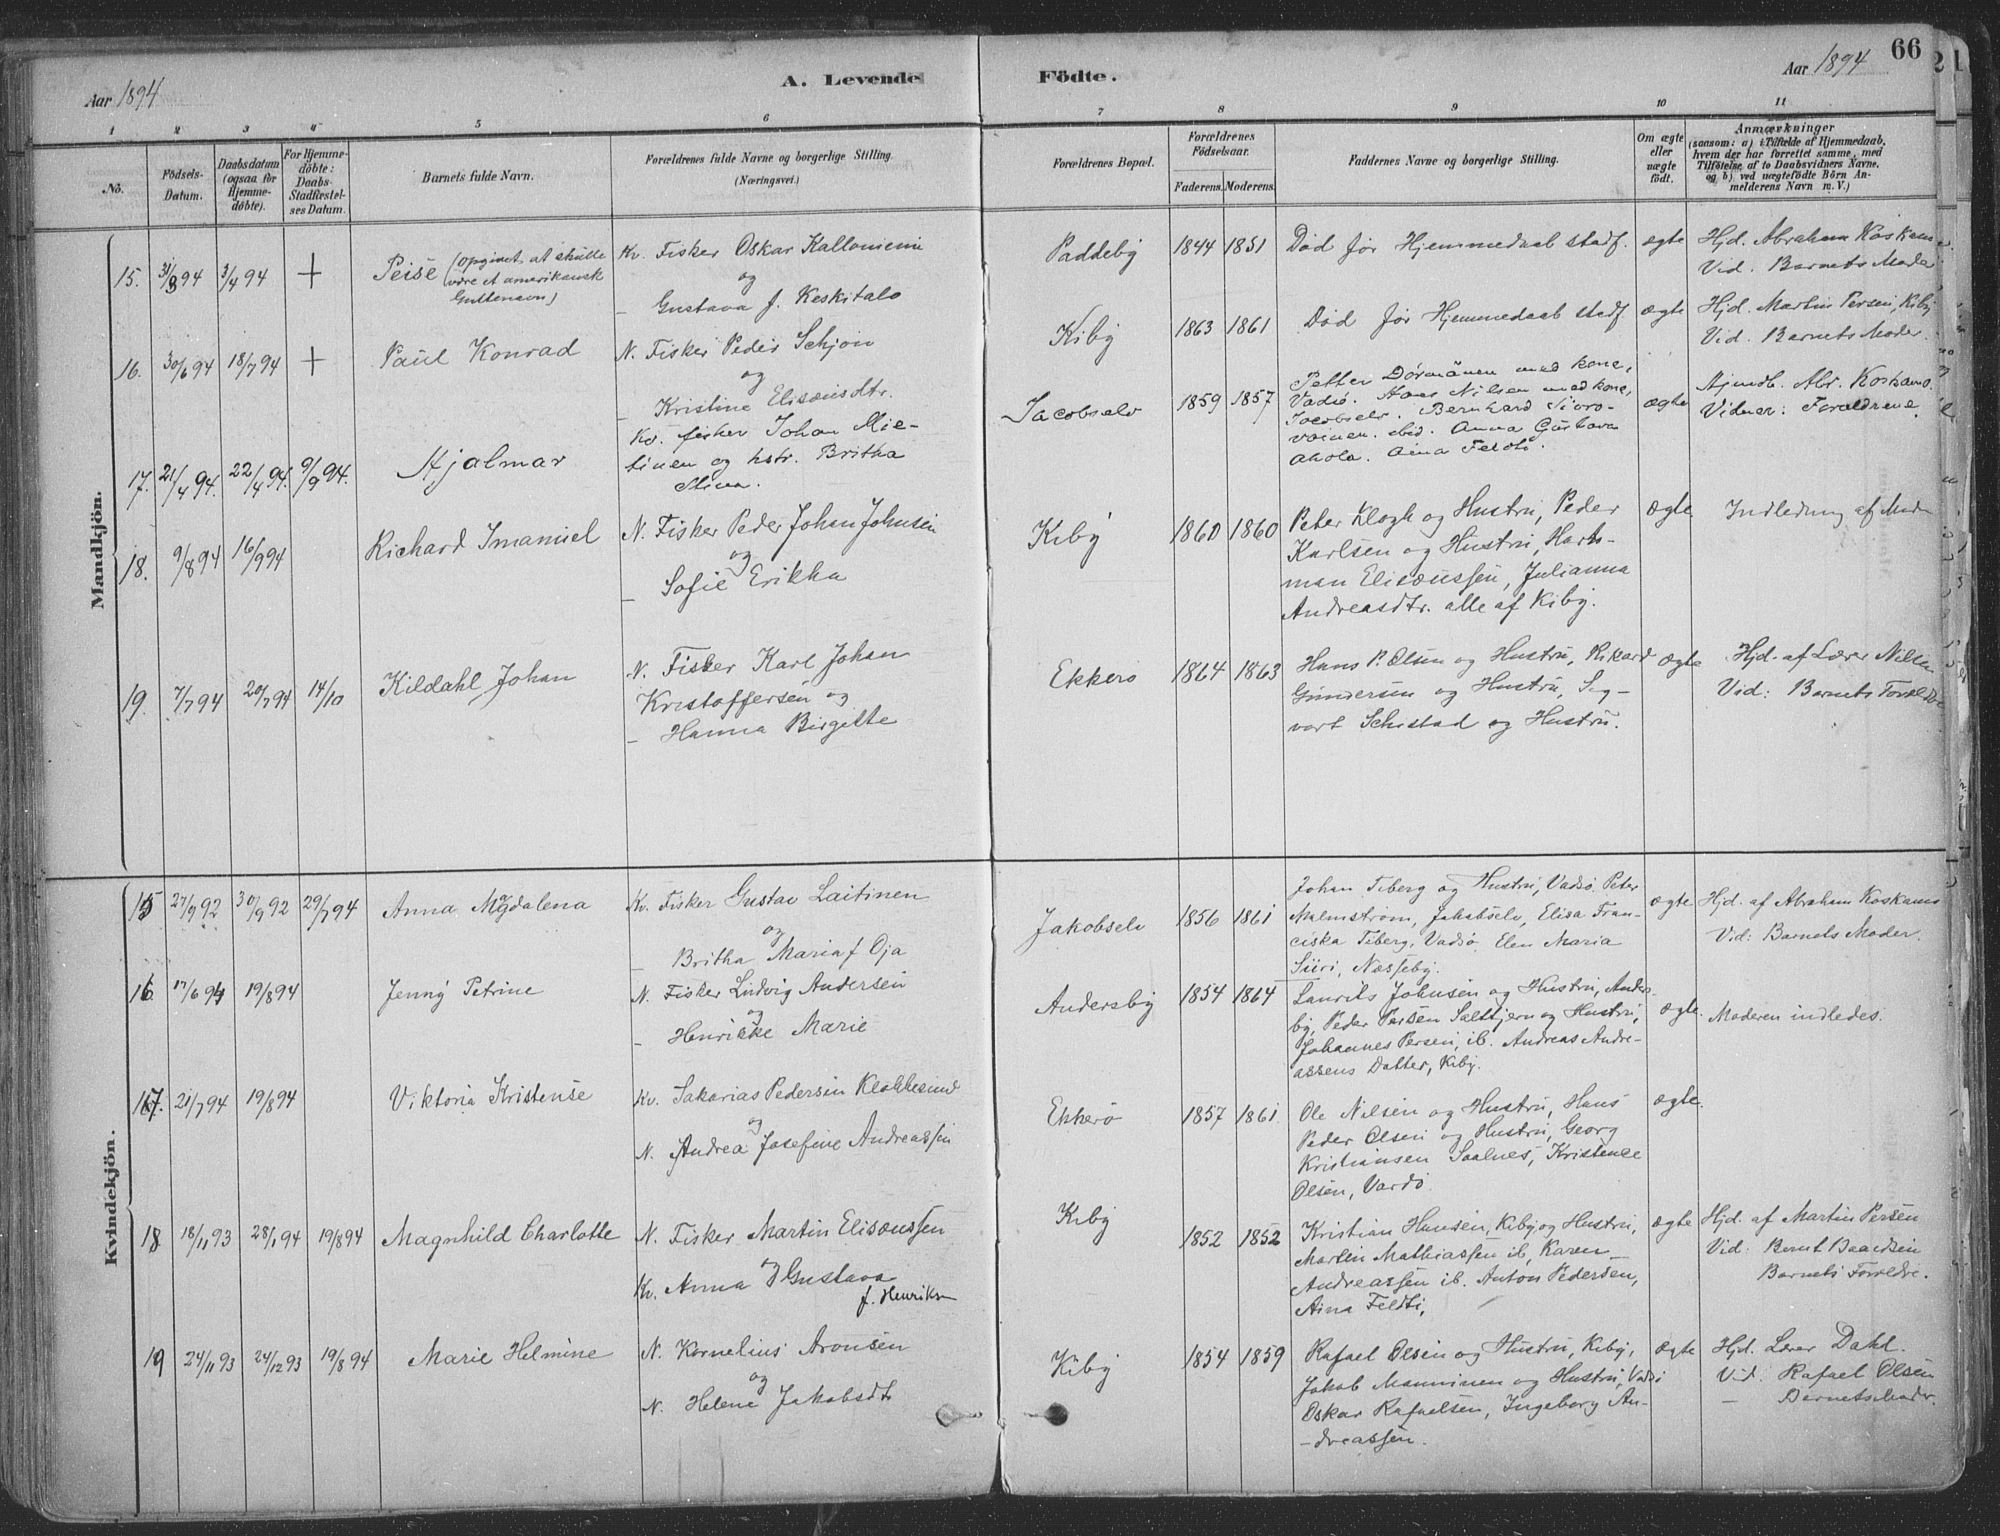 66
Aar 1894
A. Levende Födte.
Aar 1894
1 2 3 4 5 6 7 8 9 10 11
No.
Födsels-
Datum.
Daabsdatum
(ogsaa for
Hjemme-
döbte).
For Hjemme-
döbte:
Daabs-
Stadfæstel-
ses Datum.
Barnets fulde Navn.
Forældrenes fulde Navne og borgerlige Stilling.
(Næringsvei.)
Forældrenes Bopæl.
Forældrenes
Födselsaar.
Faderens. Moderens.
Faddernes Navne og borgerlige Stilling.
Om ægte
eller
uægte
födt.
Anmærkninger
(saasom: a) i Tilfælde af Hjemmedaab,
hvem der har forrettet samme, med
Tilföielse af to Daabsvidners Navne,
og b) ved uægtefödte Börn An-
melderens Navn m. V.)
Mandkjön.
15. 31/3 94 3/4 94 +
Peise (opgivet at skulle
være et amerikansk
Guttenavn)
Kv. Fisker Oskar Kalloniemi
og
— Gustava f. Keskitalo
Paddeby 1844 1851
Död før Hjemmedaab stadf.
ægte
Hjd. Abraham Koskamo
Vid. Barnets Moder
16. 30/6 94 18/7 94 +
Paul Konrad
N. Fisker Peder Schjøn
og
— Kristine Elisæusdtr.
Kiby 1863 1861
Död før Hjemmedaab stadf.
ægte
Hjd. Martin Persen, Kiby
Vid. Barnets Moder.
17. 21/4 94. 22/4 94. 9/9 94.
Hjalmar
Kv. fisker Johan Mie-
tinen og hstr. Britha
Stina.
Jacobselv 1859 1857
Petter Dørmänen med kone,
Vadsø. Hans Nilsen med kone,
Jacobselv. Bernhard Sioro-
vainen. ibid. Anna Gustava
Ahola. Aina Feldti.
ægte
Hjmdb. Abr. Koskamo.
Vidner: Forældrene.
18. 9/8 94 16/9 94
Richard Imanuel
N. Fisker Peder Johan Johnsen
og
— Sofie Erikka
Kiby 1860 1860
Peter Klogh og Hustru, Peder
Karlsen og Hustru, Hart-
man Elisæussen, Julianna
Andreasdtr. alle af Kiby.
ægte
Indledning af Moder
19. 7/7 94 20/7 94 14/10
Kildahl Johan
N. Fisker Karl Johan
Kristoffersen og
— Hanna Birgitte
Ekkerø 1864 1863
Hans P. Olsen og Hustru, Rikard
Gundersen og Hustru, Sig-
vart Schistad og Hustru.
ægte
Hjd. af Lærer Nilsen
Vid: Barnets Forældre
Kvindekjön.
15 27/9 92 30/9 92 29/7 94
Anna Magdalena
Kv. Fisker Gustav Laitinen
og
— Britha Maria f Oja
Jakobselv 1856 1861
Johan Tiberg og Hustru, Vadsø. Peter
Malmstrøm, Jakobselv, Elisa Fran-
ciska Tiberg, Vadsø, Elen Maria
Siiri, Næsseby.
ægte
Hjd. af Abraham Koskamo
Vid: Barnets Moder.
16 17/6 94 19/8 94
Jenny Petrine
N. Fisker Ludvig Andersen
og
— Henrikke Marie
Andersby 1854 1864
Laurits Johnsen og Hustru, Anders-
by, Peder Persen Saltbjern og Hustru,
Johannes Persen, ib. Andreas Andre-
assens Datter, Kiby.
ægte.
Moderen indledes.
17. 21/7 94 19/8 94
Viktoria Kristense
Kv. Sakarias Pedersen Klokkesund
og
N. Andrea Josefine Andreassen
Ekkerø 1857 1861
Ole Nilsen og Hustru, Hans
Peder Olsen og Hustru, Georg
Kristiansen Saalnes, Kristence
Olsen, Vardø
ægte.
18 18/11 93 28/1 94 19/8 94
Magnhild Charlotte
N. Fisker Martin Elisæussen
og
Kv. Anna Gustava
f. Henriksen
Kiby 1852 1852
Kristian Hansen, Kiby og Hustru,
Martin Mathiassen ib, Karen
Andreassen ib. Anton Pedersen,
Aina Feldti,
ægte
Hjd. af Martin Persen
Vid: Bernt Baardsen
Barnets Forældre.
19 24/11 93 24/12 93 19/8 94
Marie Helmine
N. Kornelius Aronsen
og
N. Helene Jakobsdt
Kiby 1854 1859
Rafael Olsen og Hustru, Kiby,
Jakob Manninen og Hustru, Vadsø
Oskar Rafaelsen, Ingeborg An-
-dreassen.
ægte
Hjd. Lærer Dahl.
Vid: Rafael Olsen
— Barnets Moder.